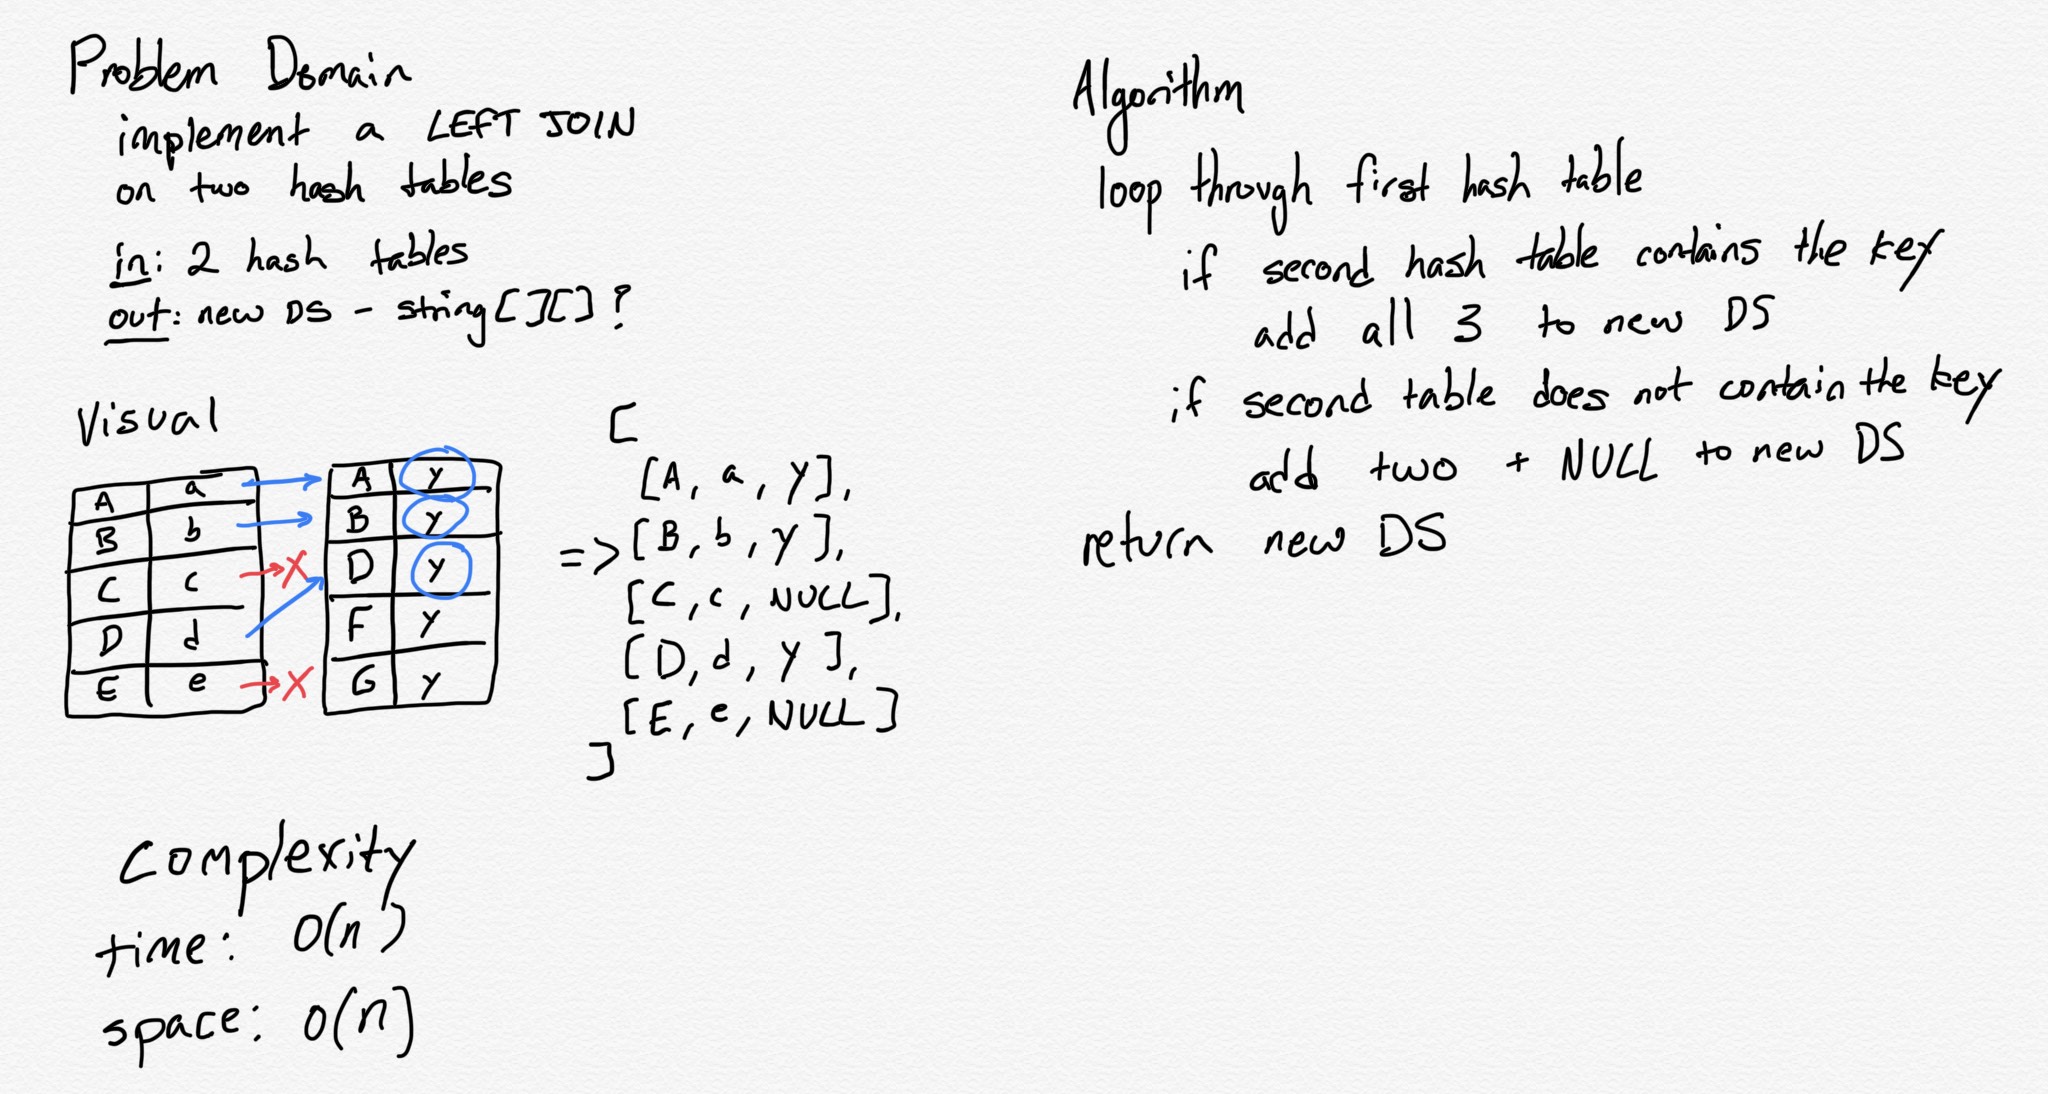 Problem Domain
implement a LEFT JOIN
on two hash tables
in: 2 hash tables
out: new DS - string[][]?
Visual
A a
B b
C c
D d
E e
X
X
A y
B y
D y
F y
G y
[
[A, a, y],
=> [B, b, y],
[C, c, NULL],
[D, d, y],
[E, e, NULL]
]
Complexity
time: O(n)
space: O(n]
Algorithm
loop through first hash table
if second hash table contains the key
add all 3 to new DS
if second table does not contain the key
add two + NULL to new DS
return new DS